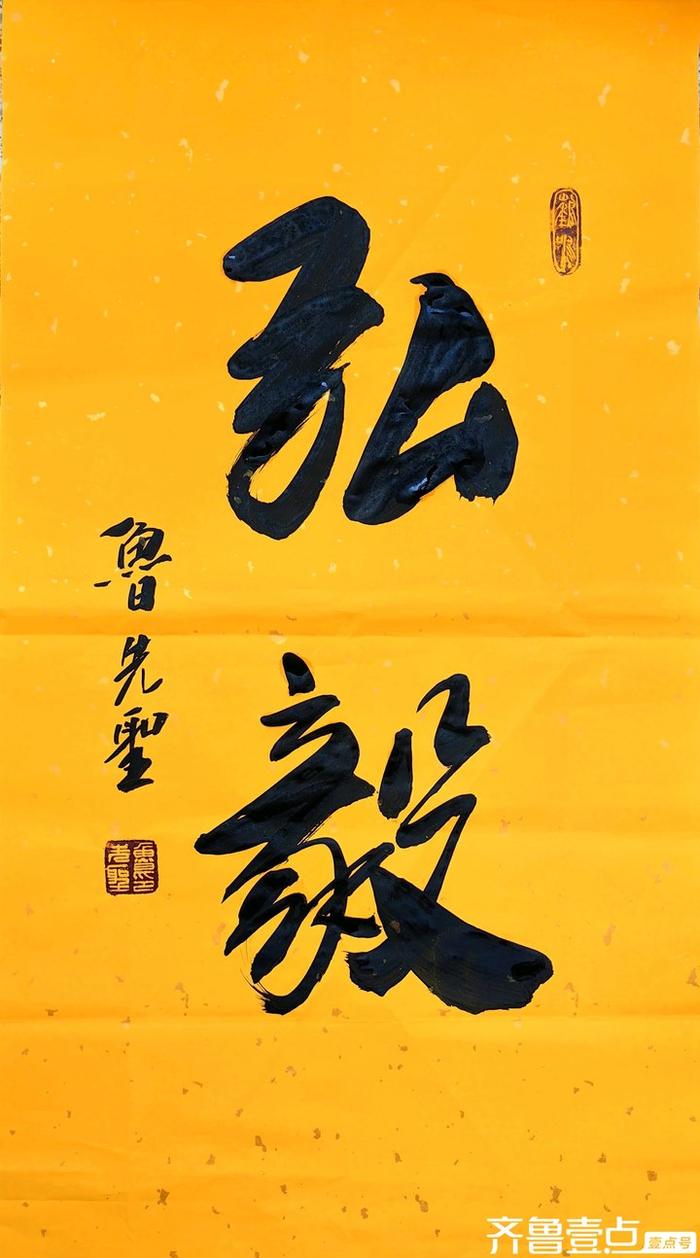 弘毅
魯先聖
齐鲁壹点
壹点号